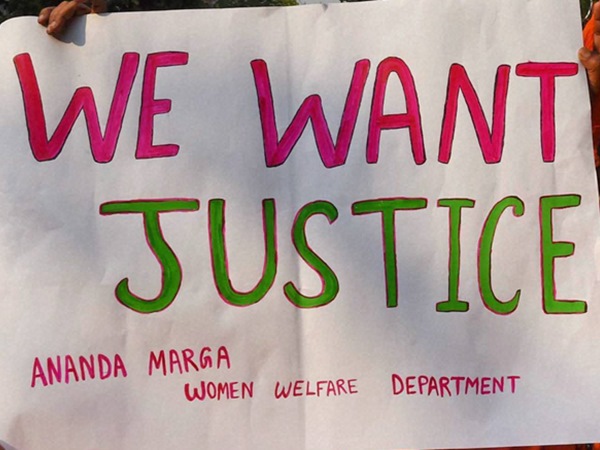 WE WANT
JUSTICE
ANANDA MARGA
WOMEN WELFARE DEPARTMENT